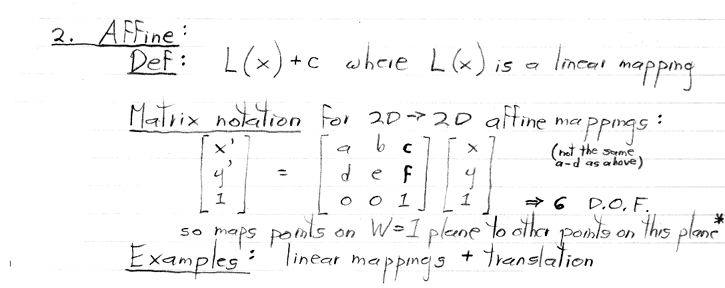 2. Affine:
Def: L(x) + c where L(x) is a linear mapping
Matrix notation for 2D → 2D affine mappings:
(not the same a-d as above)
[x' y' 1] = [a b c; d e f; 0 0 1] [x y 1]
⇒ 6 D.O.F.
so maps points on W=1 plane to other points on this plane*
Examples: linear mappings + translation